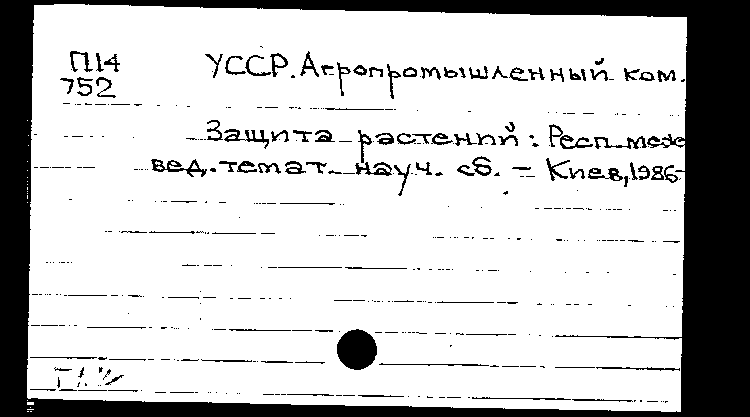 П14 УССР. Агропромышленный ком.
752
Защита растений: Респ. меж
вед. темат. науч. сб. – Киев, 1986–